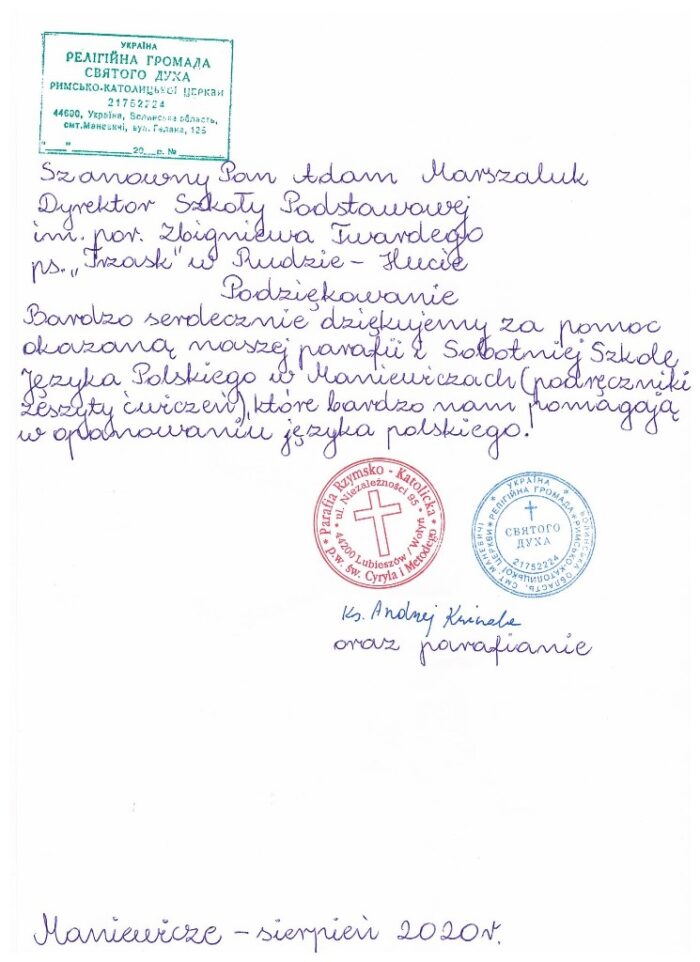 УКРАЇНА
РЕЛІГІЙНА ГРОМАДА
СВЯТОГО ДУХА
РИМСЬКО-КАТОЛИЦЬКОЇ ЦЕРКВИ
21752224
44600, Україна, Волинська область,
смт.Маневичі, вул. Галана, 126
"___"________20__р. №____
Szanowny Pan Adam Marszaluk
Dyrektor Szkoły Podstawowej
im. por. Zbigniewa Twardego
ps. „Trzask" w Rudzie – Hucie
Podziękowanie
Bardzo serdecznie dziękujemy za pomoc
okazaną naszej parafii i Sobotniej Szkole
Języka Polskiego w Maniewiczach (podręczniki
zeszyty ćwiczeń), które bardzo nam pomagają
w opanowaniu języka polskiego.
* Parafia Rzymsko - Katolicka *
p.w. św. Cyryla i Metodego
* ul. Niezależności 95 *
44200 Lubieszów / Wołyń
* УКРАЇНА * ВОЛИНСЬКА ОБЛАСТЬ, СМТ МАНЕВИЧІ
* РЕЛІГІЙНА ГРОМАДА * РИМСЬКО-КАТОЛИЦЬКОЇ ЦЕРКВИ
СВЯТОГО
ДУХА
21752224
Ks. Andrzej
oraz parafianie
Maniewicze – sierpień 2020r.